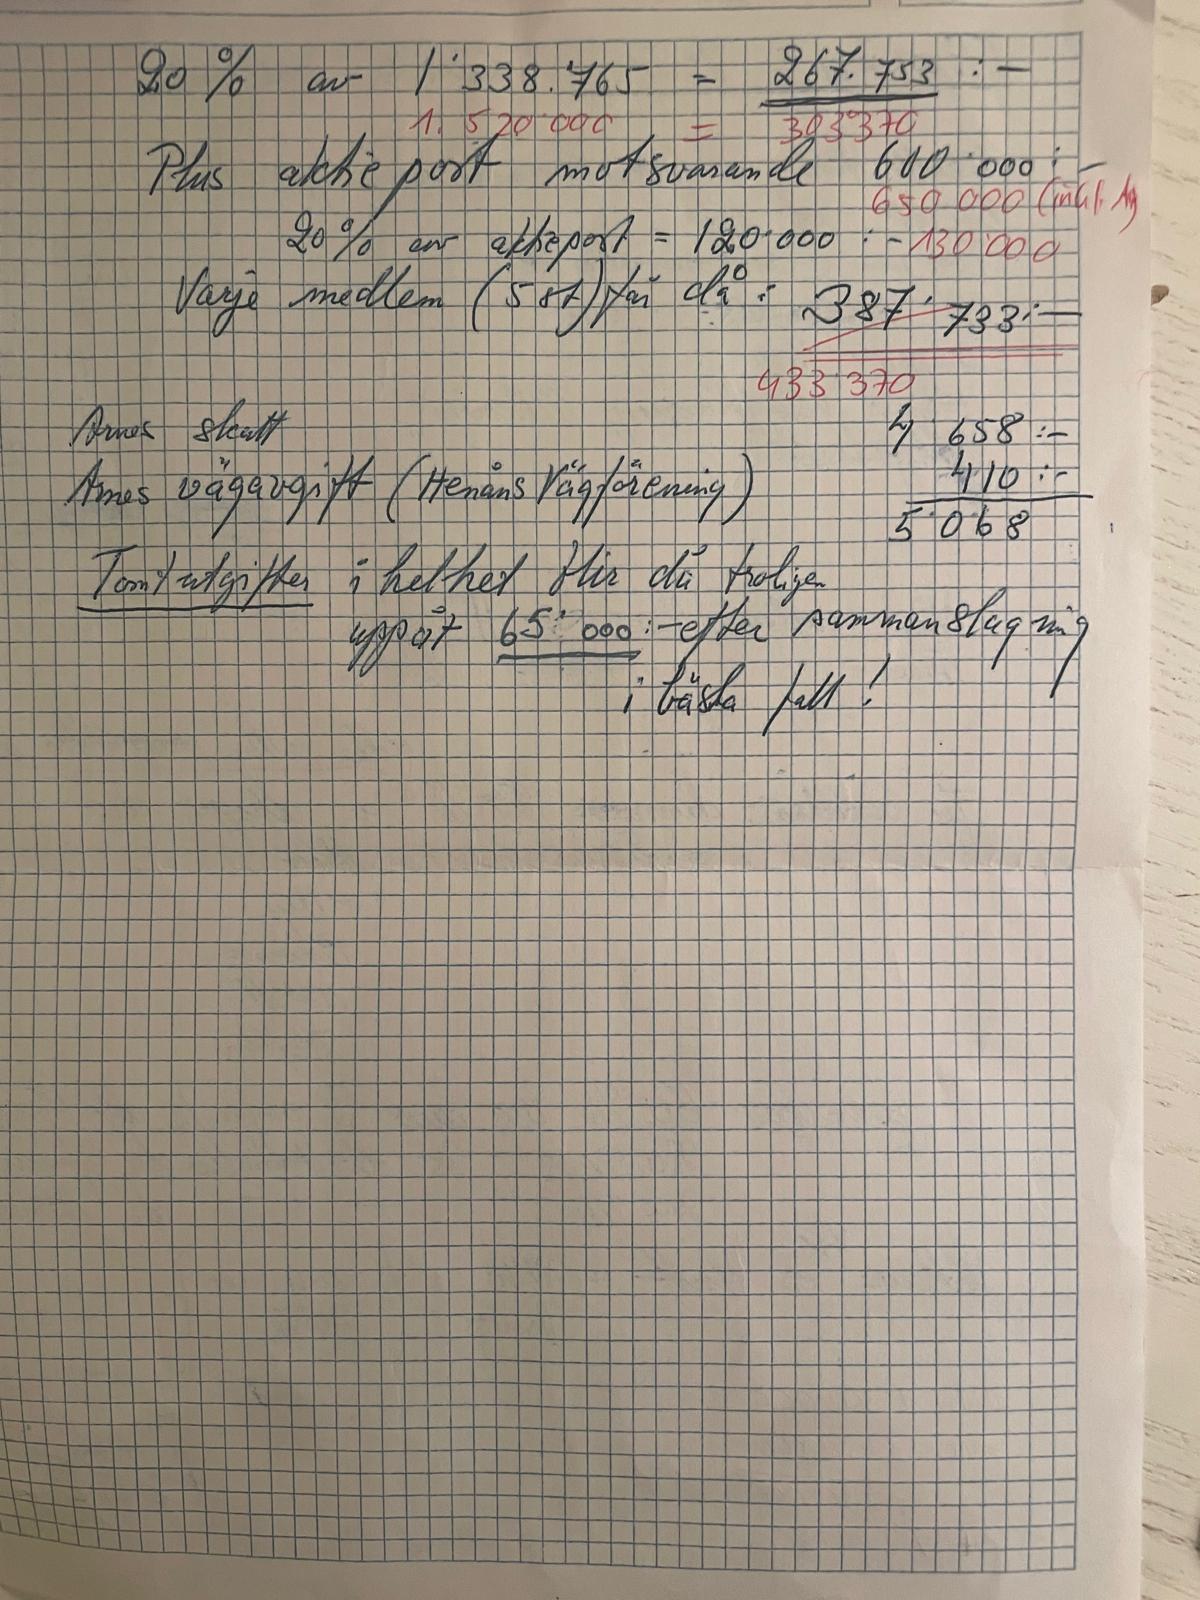 20 % av 1'338.765 = 267.753 :-
1.520'000 = 303'370
Plus aktieport motsvarande 600'000:-
650 000 (inkl.
20% av aktieport = 120'000 :- 130'000
Varje medlem (5 st) får då : 387'733:-
433'370
Arnes skatt 4 658:-
Arnes vägavgift (Henåns Vägförening) 410:-
5'068
Tomtutgifter i helhet blir då troligen
uppåt 65'000:- efter sammanslagning
i bästa fall!